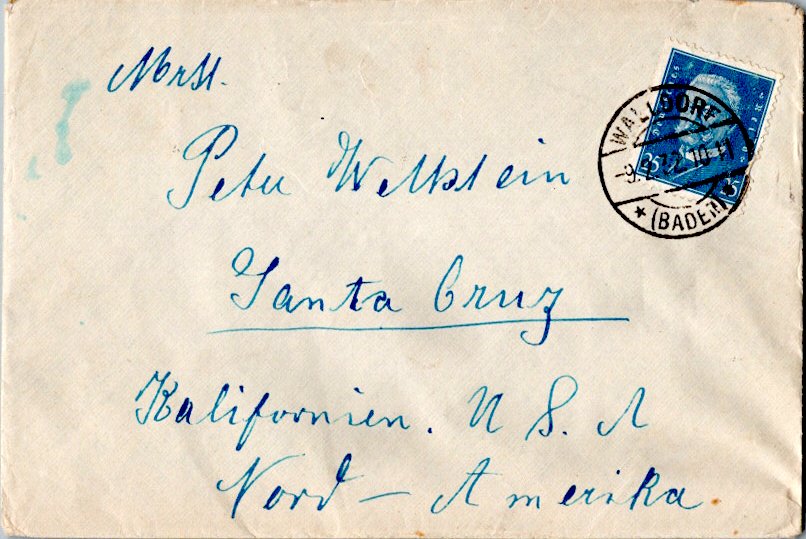 Mrss.
Peter Wettstein
Santa Cruz
Kalifornien. U S. A
Nord - Amerika
WALLDORF
10-11
★ (BADEN) ★
25 25